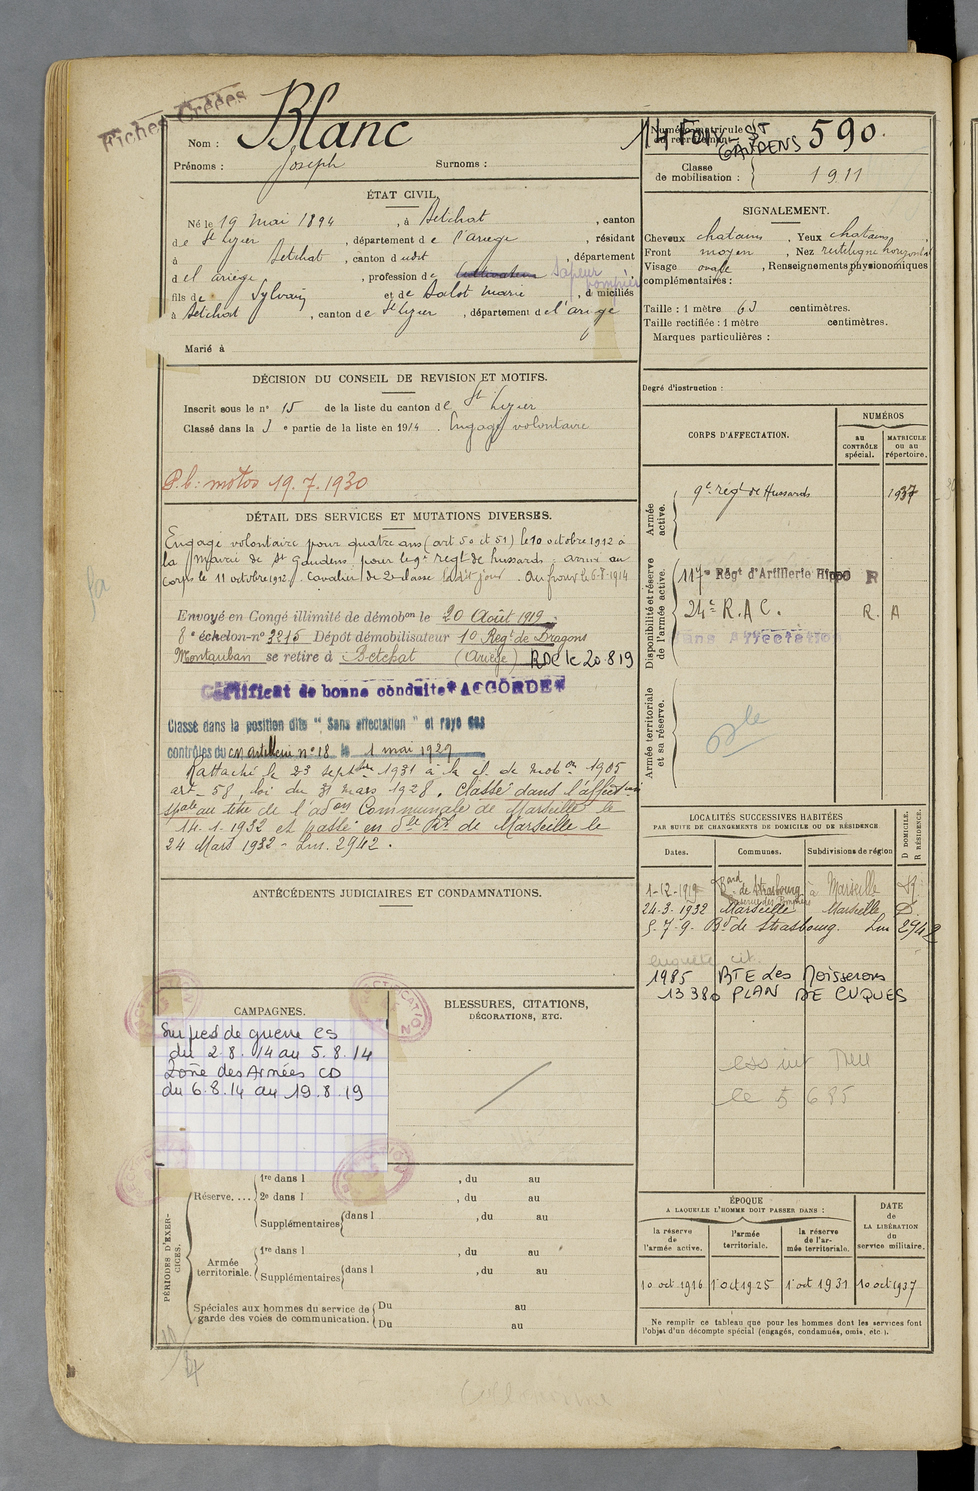 Fiches Créées
Nom : Blanc
Prénoms : Joseph Surnoms :
Numéro matricule du recrutement 590.
14 Foix St GAUDENS
Classe de mobilisation : 1911
ÉTAT CIVIL.
Né le 19 mai 1894, à Betchat, canton
de St Lizier, département de l'ariege, résidant
à Betchat, canton dudit, département
d el ariège, profession de cultivateur Sapeur pompier
fils de Sylvain et de Dalot Marie, domiciliés
à Betchat, canton de St Lizier, département de l'ariège
Marié à
SIGNALEMENT.
Cheveux chatains, Yeux chatains,
Front moyen, Nez rectiligne horizontal
Visage ovale, Renseignements physionomiques
complémentaires :
Taille : 1 mètre 63 centimètres.
Taille rectifiée : 1 mètre centimètres.
Marques particulières :
Degré d'instruction :
DÉCISION DU CONSEIL DE REVISION ET MOTIFS.
Inscrit sous le n° 15 de la liste du canton de St Lizier
Classé dans la 3e partie de la liste en 1914. Engagé volontaire
P.b: motos 19.7.1930
DÉTAIL DES SERVICES ET MUTATIONS DIVERSES.
Engagé volontaire pour quatre ans (art 50 et 51) le 10 octobre 1912 à
la mairie de St Gaudens pour le 9e regt de hussards arrivé au
corps le 11 octobre 1912. Cavalier de 2e classe ledit jour. Au front le 6-8-1914
Envoyé en Congé illimité de démobon le 20 Août 1919
8e échelon-n° 3215 Dépôt démobilisateur 10 Regt de Dragons
Montauban se retire à Betchat (Ariège) RDC le 20.8.19
Certificat de bonne conduite *ACCORDÉ*
Classé dans la position dite " Sans affectation " et rayé des
contrôles du CM artillerie n° 18 le 1 mai 1929
Rattaché le 23 septbre 1931 à la cl. de mobon 1905
art. 58, loi du 31 mars 1928. Classé dans l'affection
spale au titre de l'adon Communale de Marseille le
14.1.1932 et passé en dle Rt de Marseille le
24 Mars 1932 - Lm. 2942.
CORPS D'AFFECTATION.
NUMÉROS
au CONTRÔLE spécial.
MATRICULE ou au répertoire.
Armée active.
9e régt de Hussards 1937
Disponibilité et réserve de l'armée active.
117e Régt d'Artillerie Hippo R
24e R.A.C. R. A
Sans Affectation
Armée territoriale et sa réserve.
LOCALITÉS SUCCESSIVES HABITÉES
PAR SUITE DE CHANGEMENTS DE DOMICILE OU DE RÉSIDENCE.
Dates. Communes. Subdivisions de région
D DOMICILE. R RÉSIDENCE.
1-12-1919 Bard de Strasbourg à Marseille R
Caserne des Pompiers
24-3-1932 Marseille Marseille D.
5-7-9. Bd de Strasbourg. Lm 2942
1985 BTE des Moisserons
13380 PLAN DE CUQUES
le 5 6 85
ANTÉCÉDENTS JUDICIAIRES ET CONDAMNATIONS.
CAMPAGNES.
Sur pied de guerre CS
du 2.8.14 au 5.8.14
Zone des Armées CD
du 6.8.14 au 19.8.19
RECTIFICATION
BLESSURES, CITATIONS,
DÉCORATIONS, ETC.
PÉRIODES D'EXERCICES.
Réserve.... 1re dans l , du au
2e dans l , du au
Supplémentaires dans l , du au
Armée territoriale. 1re dans l , du au
Supplémentaires dans l , du au
Spéciales aux hommes du service de garde des voies de communication. Du au
Du au
ÉPOQUE
A LAQUELLE L'HOMME DOIT PASSER DANS :
la réserve de l'armée active.
l'armée territoriale.
la réserve de l'armée territoriale.
DATE de LA LIBÉRATION du service militaire.
10 oct 1916 1 oct 1925 1 oct 1931 10 oct 1937
Ne remplir ce tableau que pour les hommes dont les services font
l'objet d'un décompte spécial (engagés, condamnés, omis, etc.).